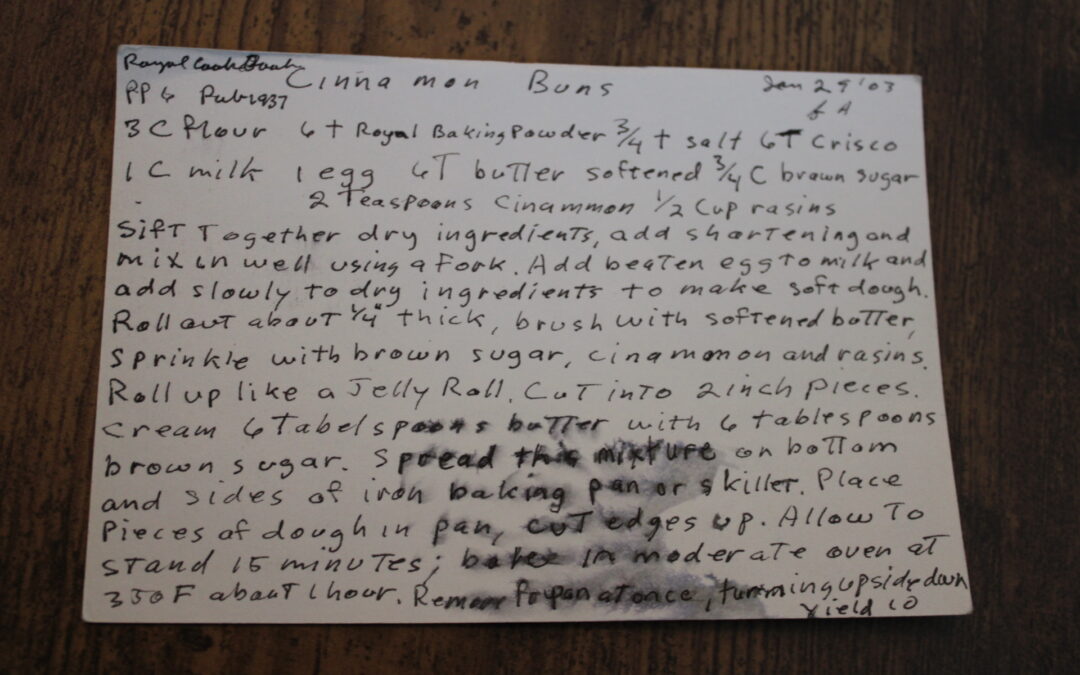 Royal Cook Book Cinnamon Buns Jan 29 '03
PP 6 Pub 1937
3 C flour 6 t Royal Baking Powder 3/4 t salt 6T Crisco
1 C milk 1 egg 6T butter softened 3/4 C brown sugar
2 Teaspoons Cinammon 1/2 Cup rasins
Sift Together dry ingredients, add shortening and
mix in well using a fork. Add beaten egg to milk and
add slowly to dry ingredients to make soft dough.
Roll out about 1/4" thick, brush with softened butter,
sprinkle with brown sugar, cinamomon and rasins.
Roll up like a Jelly Roll. Cut into 2 inch pieces.
Cream 6 Tabelspoons butter with 6 tablespoons
brown sugar. Spread this mixture on bottom
and sides of iron baking pan or skiller. Place
Pieces of dough in pan, cut edges up. Allow To
stand 15 minutes; bake in moderate oven at
350 F about 1 hour. Remove pan at once, turnning upside down
Yield 10